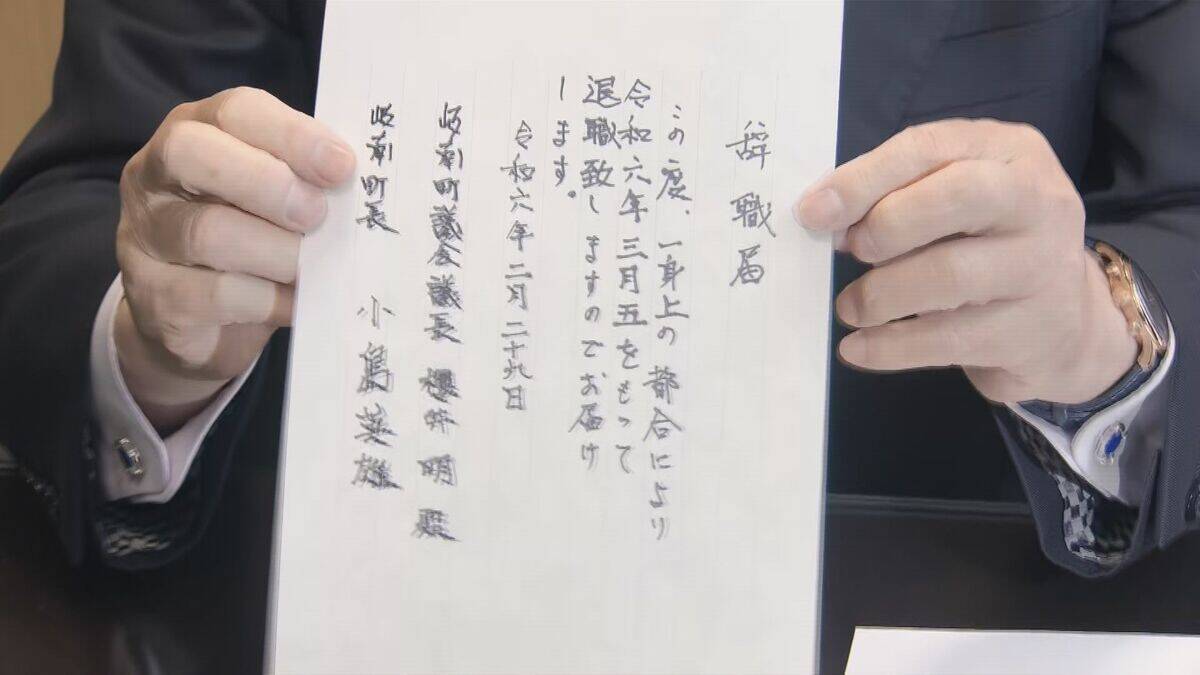 辞職届
この度、一身上の都合により
令和六年三月五をもって
退職致しますのでお届け
します。
令和六年二月二十九日
岐南町議会議長 櫻井明殿
岐南町長 小島英雄